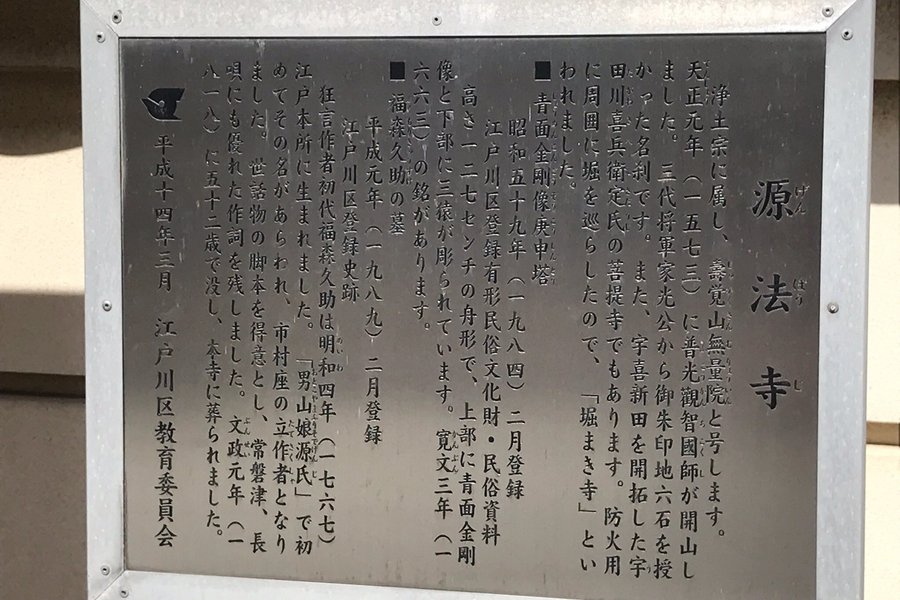 源法寺
浄土宗に属し、壽覚山無量院と号します。
天正元年（一五七三）に普光觀智國師が開山し
ました。三代将軍家光公から御朱印地六石を授
かった名刹です。また、宇喜新田を開拓した宇
田川喜兵衛定氏の菩提寺でもあります。防火用
に周囲に堀を巡らしたので、「堀まき寺」とい
われました。
■青面金剛像庚申塔
昭和五十九年（一九八四）二月登録
江戸川区登録有形民俗文化財・民俗資料
高さ一二七センチの舟形で、上部に青面金剛
像と下部に三猿が彫られています。寛文三年（一
六六三）の銘があります。
■福森久助の墓
平成元年（一九八九）二月登録
江戸川区登録史跡
狂言作者初代福森久助は明和四年（一七六七）
江戸本所に生まれました。「男山娘源氏」で初
めてその名があらわれ、市村座の立作者となり
ました。世話物の脚本を得意とし、常磐津、長
唄にも優れた作詞を残しました。文政元年（一
八一八）に五十二歳で没し、本寺に葬られました。
平成十四年三月　江戸川区教育委員会